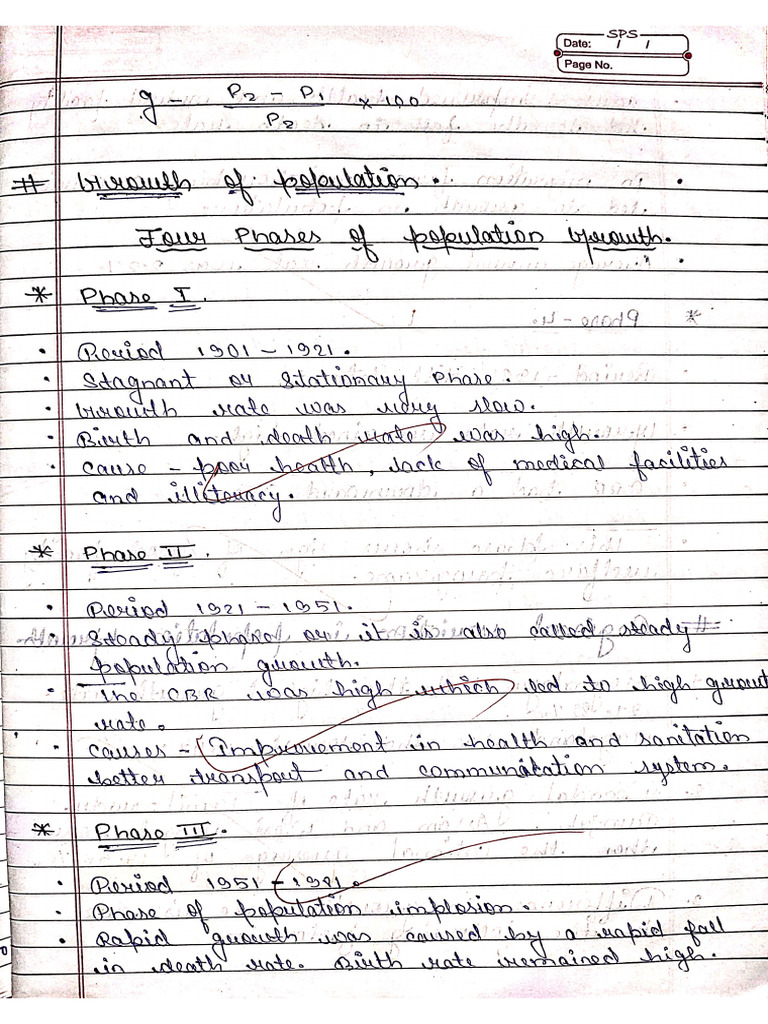 SPS
Date: / /
Page No.
g - P2 - P1 / P2 × 100
# Growth of population.
Four Phases of population Growth.
* Phase I.
• Period 1901 - 1921.
• Stagnant or Stationary Phase.
• Growth rate was very slow.
• Birth and death rate was high.
• Cause - poor health, lack of medical facilities
and illiteracy.
* Phase II.
• Period 1921 - 1951.
• Steady phase or it is also called steady
population growth.
• The CBR was high which led to high growt
rate.
• Causes - Improvement in health and sanitation
better transport and communication system.
* Phase III.
• Period 1951 - 1981.
• Phase of population implosion.
• Rapid growth was caused by a rapid fall
in death rate. Birth rate remained high.